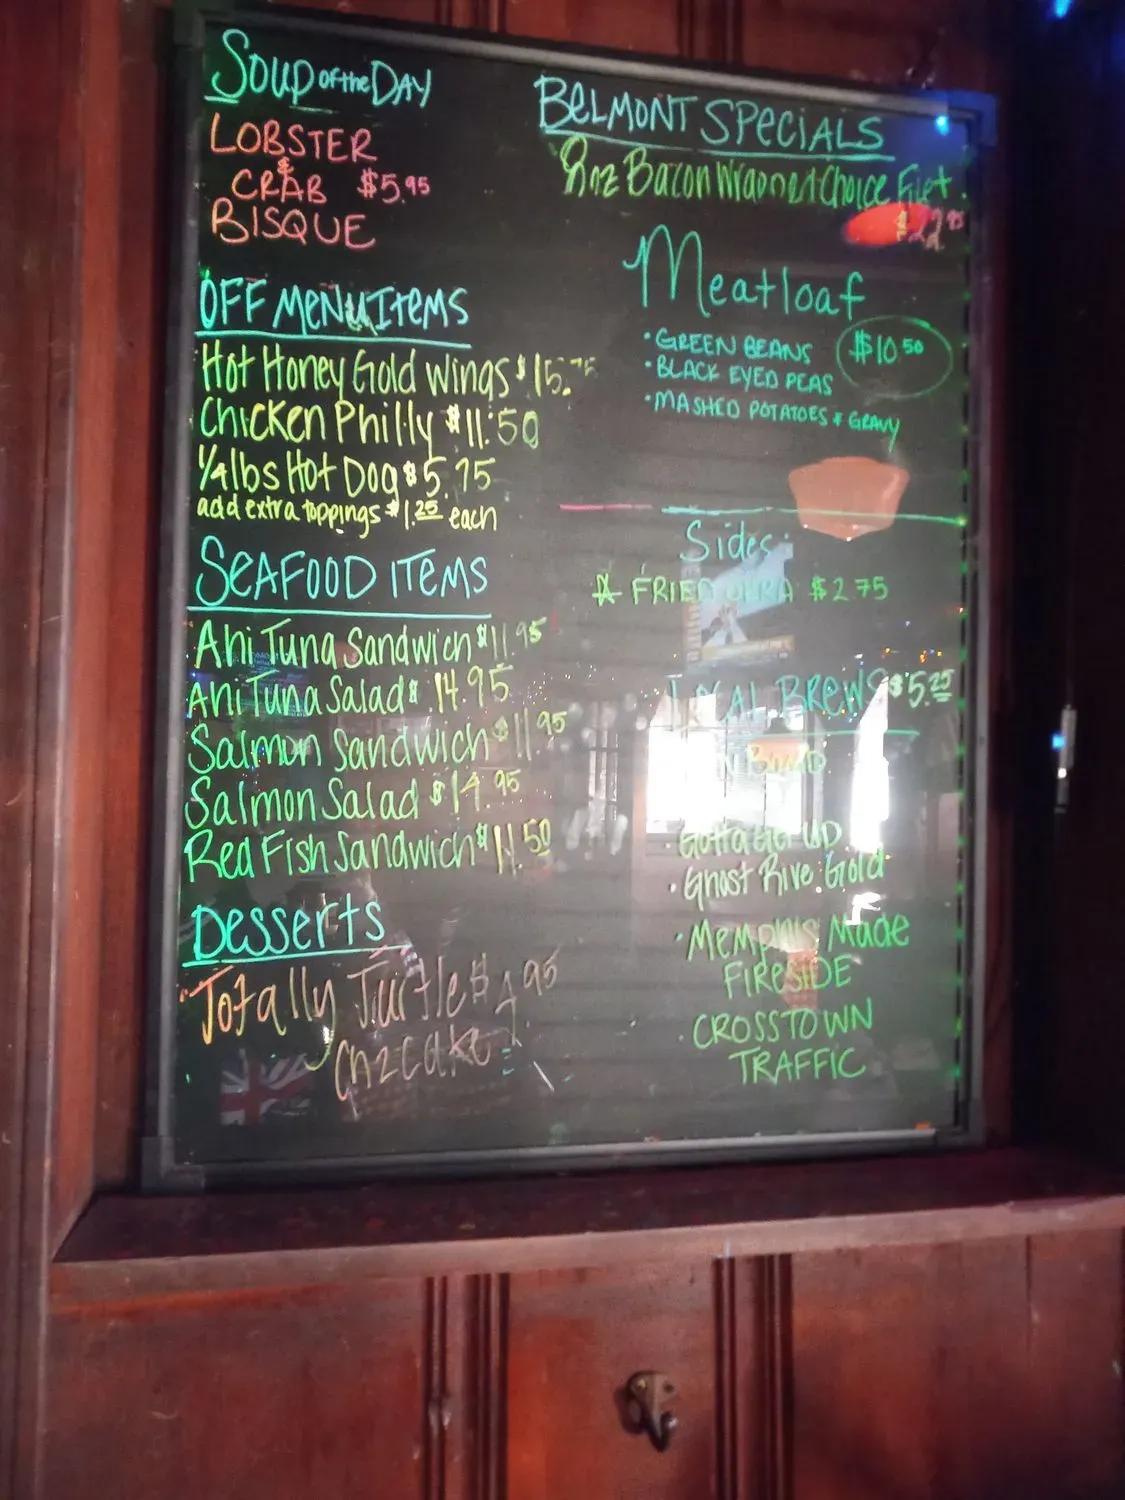 Soup of the Day
LOBSTER
&
CRAB $5.95
BISQUE
OFF MENU ITEMS
Hot Honey Gold Wings $15.75
Chicken Philly $11.50
1/4lbs Hot Dog $5.75
add extra toppings $1.25 each
SEAFOOD ITEMS
Ahi Tuna Sandwich $11.95
Ahi Tuna Salad $14.95
Salmon Sandwich $11.95
Salmon Salad $14.95
Red Fish Sandwich $11.50
Desserts
Totally Turtle $4.95
BELMONT SPECIALS
8oz Bacon Wrapped Choice Filet
$22.95
Meatloaf
• GREEN BEANS $10.50
• BLACK EYED PEAS
• MASHED POTATOES & GRAVY
Sides:
FRIED OKRA $2.75
LOCAL BREWS $5.25
• Gotta Get Up
• Ghost River Gold
• Memphis Made
FIRESIDE
• CROSSTOWN
TRAFFIC